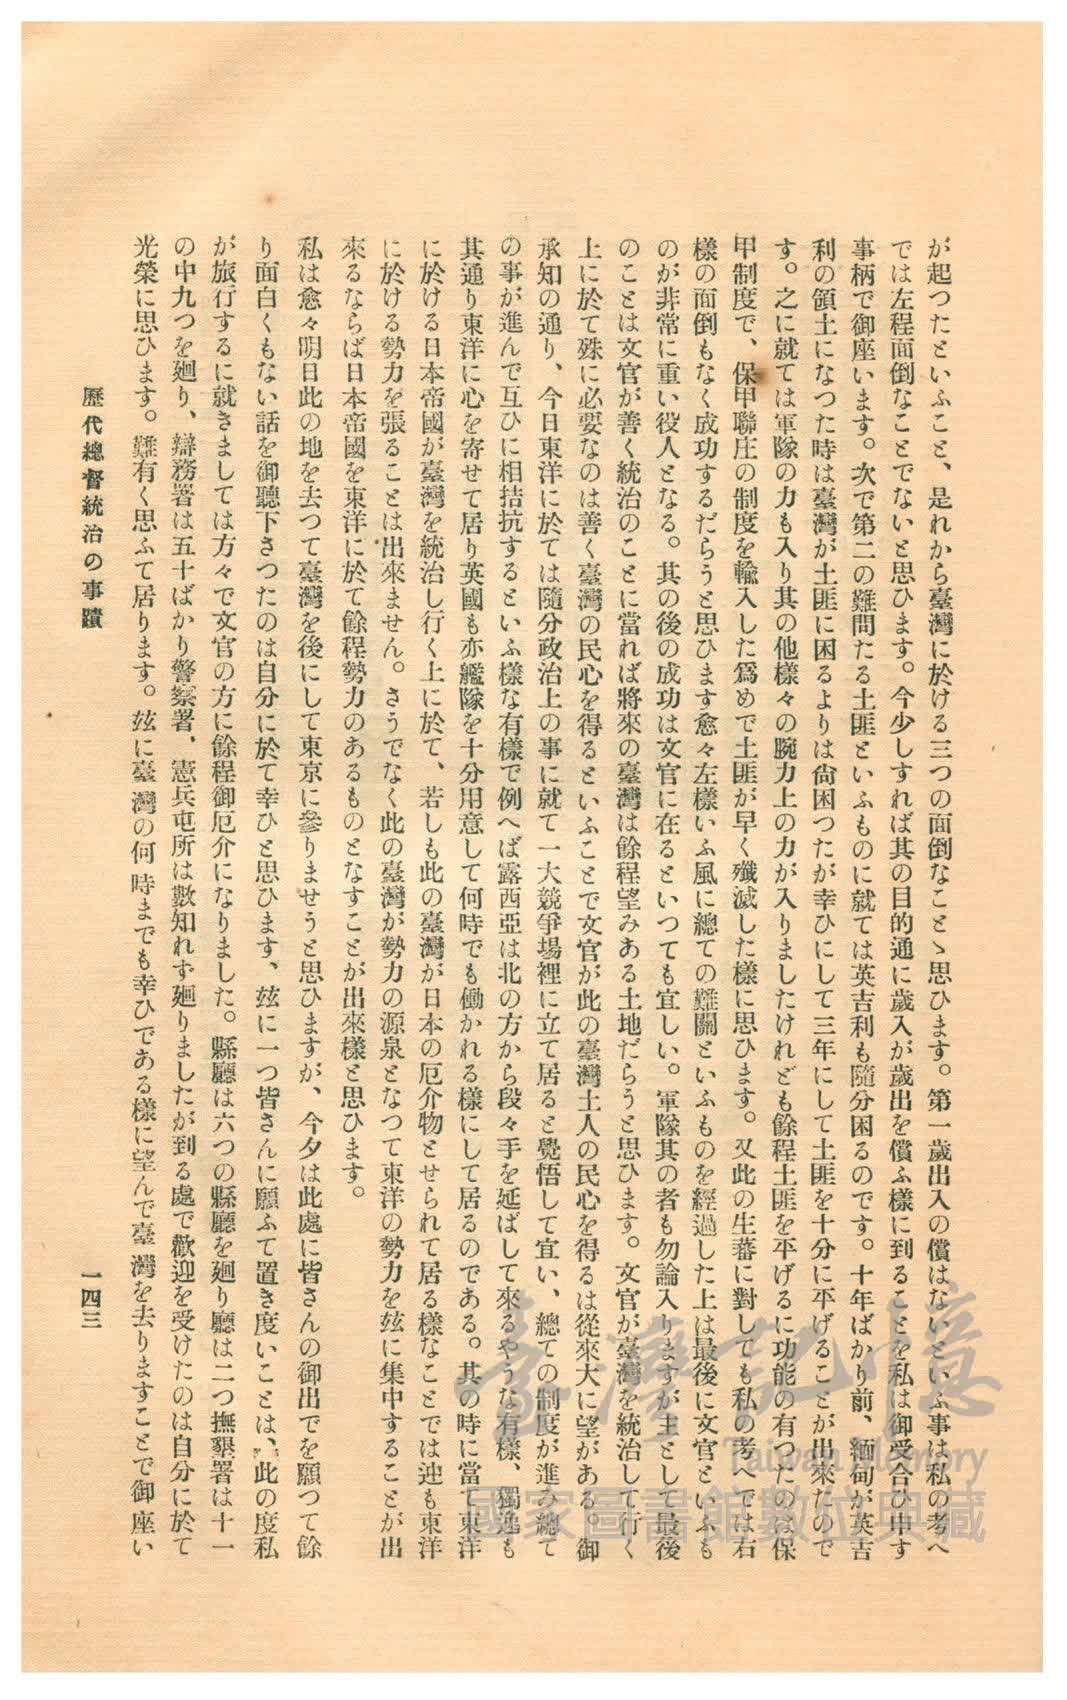 が起つたといふこと、是れから臺灣に於ける三つの面倒なことゝ思ひます。第一歲出入の償はないといふ事は私の考へ
では左程面倒なことでないと思ひます。今少しすれば其の目的通に歲入が歲出を償ふ樣に到ることを私は御受合ひ申す
事柄で御座います。次で第二の難問たる土匪といふものに就ては英吉利も隨分困るのです。十年ばかり前、緬甸が英吉
利の領土になつた時は臺灣が土匪に困るよりは尙困つたが幸ひにして三年にして土匪を十分に平げることが出來たので
す。之に就ては軍隊の力も入り其の他樣々の腕力上の力が入りましたけれども餘程土匪を平げるに功能の有つたのは保
甲制度で、保甲聯庄の制度を輸入した爲めで土匪が早く殲滅した樣に思ひます。又此の生蕃に對しても私の考へでは右
樣の面倒もなく成功するだらうと思ひます愈々左樣いふ風に總ての難關といふものを經過した上は最後に文官といふも
のが非常に重い役人となる。其の後の成功は文官に在るといつても宜しい。軍隊其の者も勿論入りますが主として最後
のことは文官が善く統治のことに當れば將來の臺灣は餘程望みある土地だらうと思ひます。文官が臺灣を統治して行く
上に於て殊に必要なのは善く臺灣の民心を得るといふことで文官が此の臺灣土人の民心を得るは從來大に望がある。御
承知の通り、今日東洋に於ては隨分政治上の事に就て一大競爭場裡に立て居ると覺悟して宜い、總ての制度が進み總て
の事が進んで互ひに相拮抗するといふ樣な有樣で例へば露西亞は北の方から段々手を延ばして來るやうな有樣、獨逸も
其通り東洋に心を寄せて居り英國も亦艦隊を十分用意して何時でも働かれる樣にして居るのである。其の時に當て東洋
に於ける日本帝國が臺灣を統治し行く上に於て、若しも此の臺灣が日本の厄介物とせられて居る樣なことでは迚も東洋
に於ける勢力を張ることは出來ません。さうでなく此の臺灣が勢力の源泉となつて東洋の勢力を玆に集中することが出
來るならば日本帝國を東洋に於て餘程勢力のあるものとなすことが出來樣と思ひます。
私は愈々明日此の地を去つて臺灣を後にして東京に參りませうと思ひますが、今夕は此處に皆さんの御出でを願つて餘
り面白くもない話を御聽下さつたのは自分に於て幸ひと思ひます、玆に一つ皆さんに願ふて置き度いことは、此の度私
が旅行するに就きましては方々で文官の方に餘程御厄介になりました。縣廳は六つの縣廳を廻り廳は二つ撫墾署は十一
の中九つを廻り、辯務署は五十ばかり警察署、憲兵屯所は數知れず廻りましたが到る處で歡迎を受けたのは自分に於て
光榮に思ひます。難有く思ふて居ります。玆に臺灣の何時までも幸ひである樣に望んで臺灣を去りますことで御座い
歷代總督統治の事蹟
一四三
臺灣記憶
Taiwan Memory
國家圖書館數位典藏